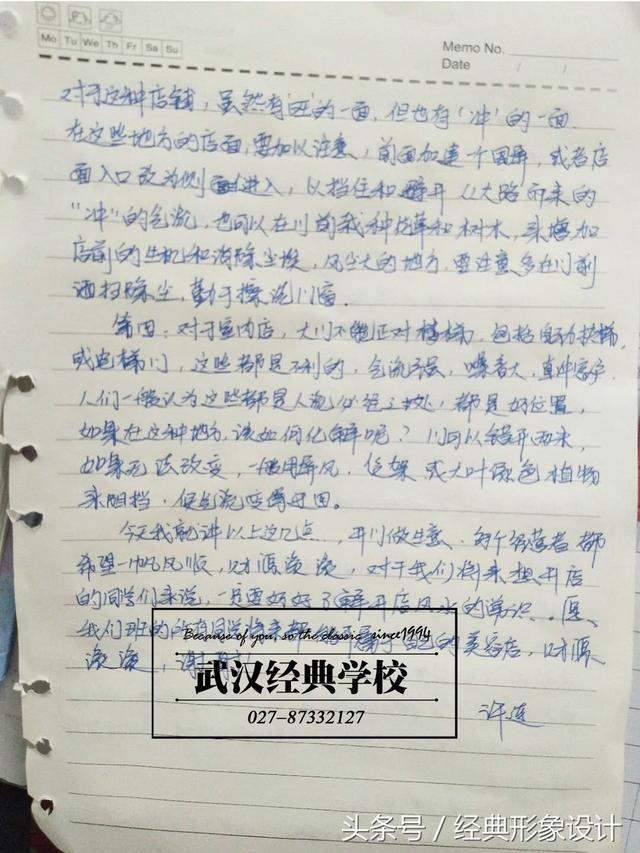 Mo Tu We Th Fr Sa Su
Memo No.
Date / /
对于这种店铺，虽然有'旺'的一面，但也有'冲'的一面.
在这些地方的店面，要加以注意，前面加建一个围屏，或者店
面入口改为侧面进入，以挡住和避开从大路而来的
"冲"的气流，也可以在门前栽种花草和树木，来增加
店前的生机和消除尘埃，风尘大的地方，要注意多在门前
洒扫除尘，勤于擦洗门窗.
第四：对于室内店，大门不能正对楼梯，包括自动扶梯，
或电梯门，这些都是不利的，气流强，噪音大，直冲客户
人们一般认为这些都是人流必经之处，都是好位置，
如果在这种地方该如何化解呢？门可以错开而来，
如果无法改变，一般用屏风，货架或大叶绿色植物
来阻挡，使气流变得迂回。
今天我就讲以上这几点，开门做生意，每个经营者都
希望一帆风顺，财源滚滚，对于我们将来想开店
的同学们来说，一定要好好了解开店风水的常识.
我们班的所有同学将来都能开属于自己的美容店，财源
滚滚，谢谢
许连
Because of you, so the classic since1994
武汉经典学校
027-87332127
头条号／经典形象设计